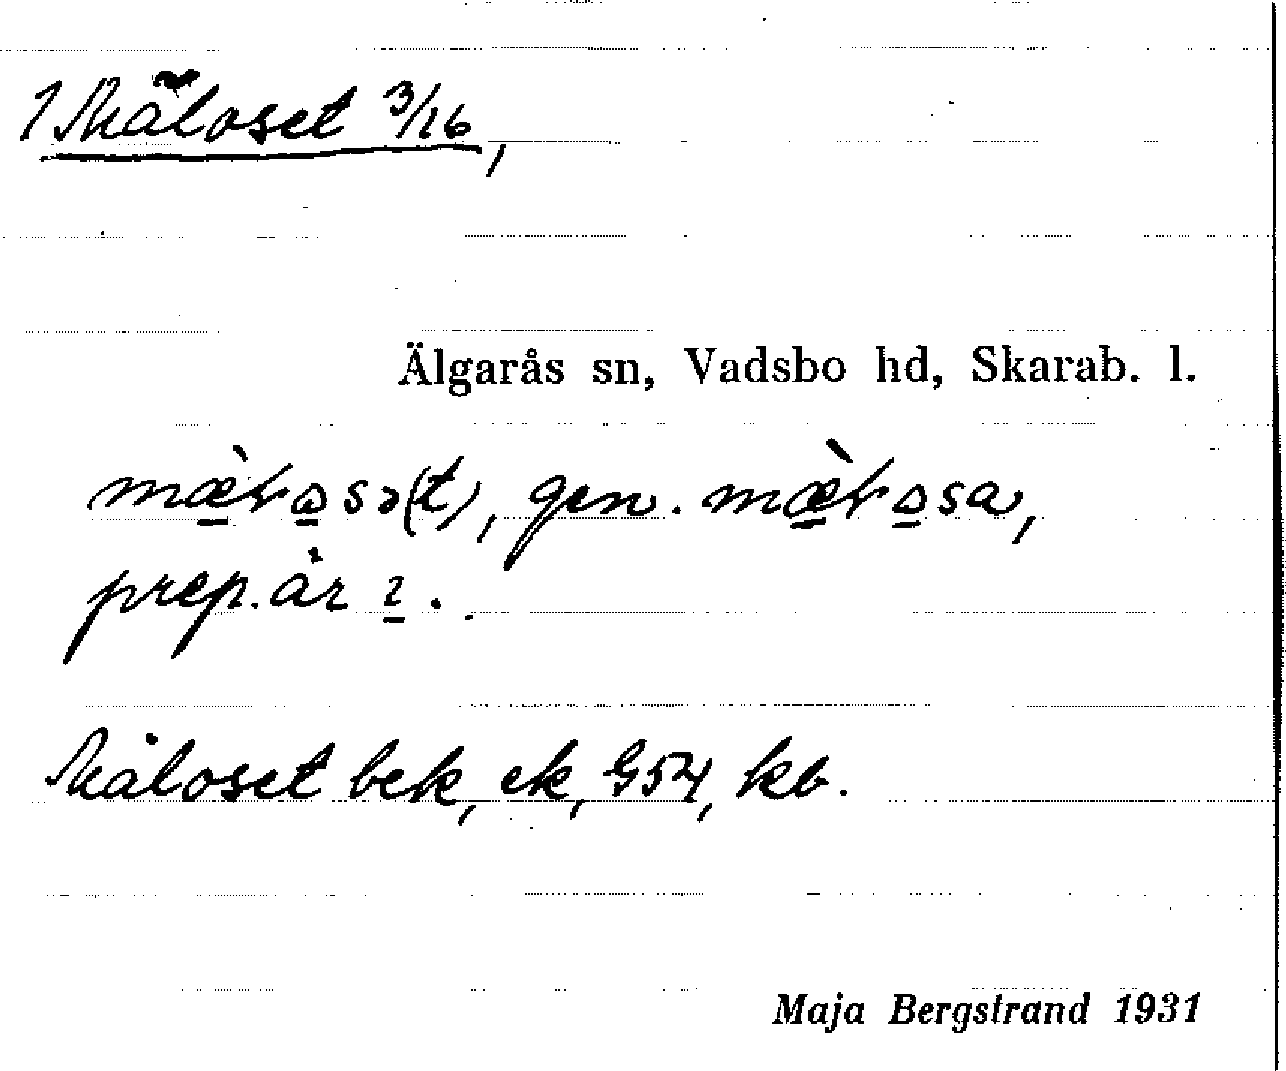 1 Mäloset 3/16,
Älgarås sn, Vadsbo hd, Skarab. l.
mæ̀ɽɔsə(t), gen. mæ̀ɽɔsa,
prep. är ɪ.
Mäloset bek, ek, G54, kb.
Maja Bergstrand 1931